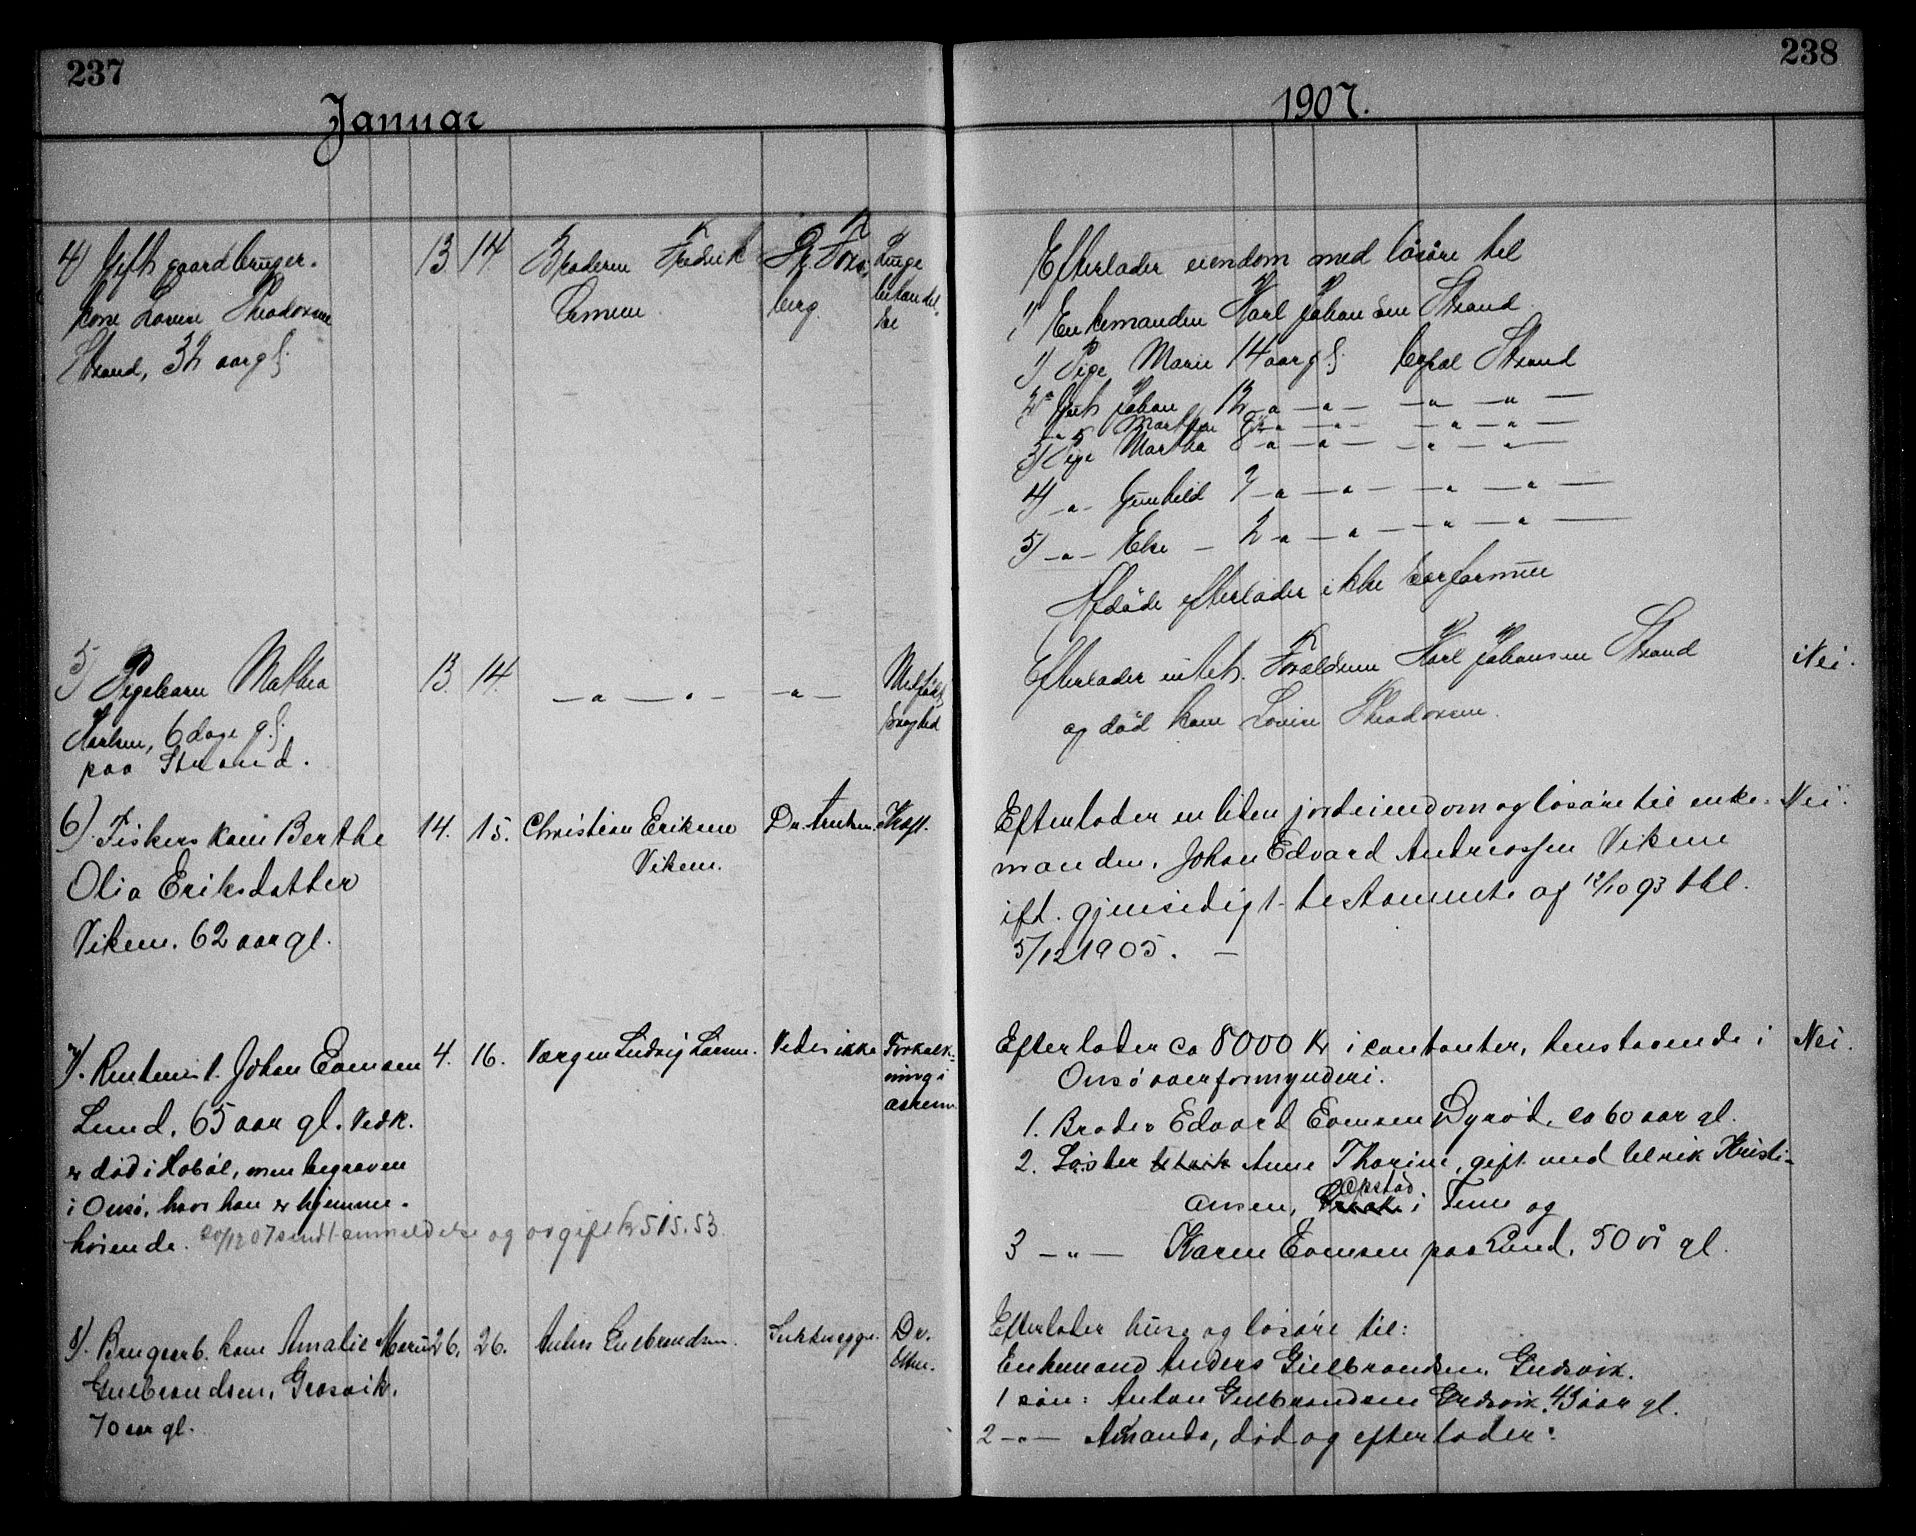 237
Januar
4) Gift gaardbruger-
kone Lovise Theodorsen
Strand, 32 aar gl.
13 14 Broderen Fredrik
berg
Lunge
betændel-
se
5) Pigebarn Mathea
Karlsen, 6 dage gl.
paa Strand.
13. 14. — " — " — — " —
Medfødt
svaghed
6). Fiskerskone Berthe
Olia Eriksdatter
Viken. 62 aar gl.
14. 15. Christian Eriksen
Viken.
Dr. Kræft.
7). Rentenist. Johan Evensen
Lund. 65 aar gl. Vedk.
er død i Hobøl, men begraven
i Onsø, hvor han er hjemme-
hørende. 20/12 07 sendt anmeldelse og avgift kr 515.53
4. 16. Værgen Ludvig Larsen. Vides ikke Forkalk-
ning i
8). Brugsarb. kone Amalie
Gulbrandsen,
70 aar gl.
26. 26. Anders Gulbrandsen. Dr.
238
1907.
Efterlader eiendom med løsøre til
Enkemanden Karl Johansen Strand
1) Pige Marie 14 aar gl. bopæl Strand
2) Gut Johan 12 — " — " — — " — " —
3) Pige Martha 8 — " — " — — " — " —
4) — " — Gunhild 7 — " — " — — " — " —
5) — " — Else — 2 — " — " — — " — " —
Afdøde efterlader ikke særformue
Efterlader intet. Forældrene Karl Johansen Strand
og død kone Lovise Theodorsen.
Nei.
Efterlader en liten jordeiendom og løsøre til enke-
manden, Johan Edvard Andreassen Viken
ifl. gjensidigt testamente af 12/10 93 thl.
5/12 1905. —
Nei.
Efterlader ca 8000 kr i contanter, henstaaende i
Onsø overformynderi.
Nei.
1. Broder Edvard Evensen Dyrød, ca 60 aar gl.
2. Søster Anne Thorine, gift med Ulrik Kristi-
ansen, Opstad i Tune og
3 — " — Karen Evensen paa Lund. 50 år gl.
Efterlader huse og løsøre til:
Enkemand Anders Gulbrandsen,
1 søn: Anton Gulbrandsen 43 aar gl.
2 — " — Amanda, død og efterlader: